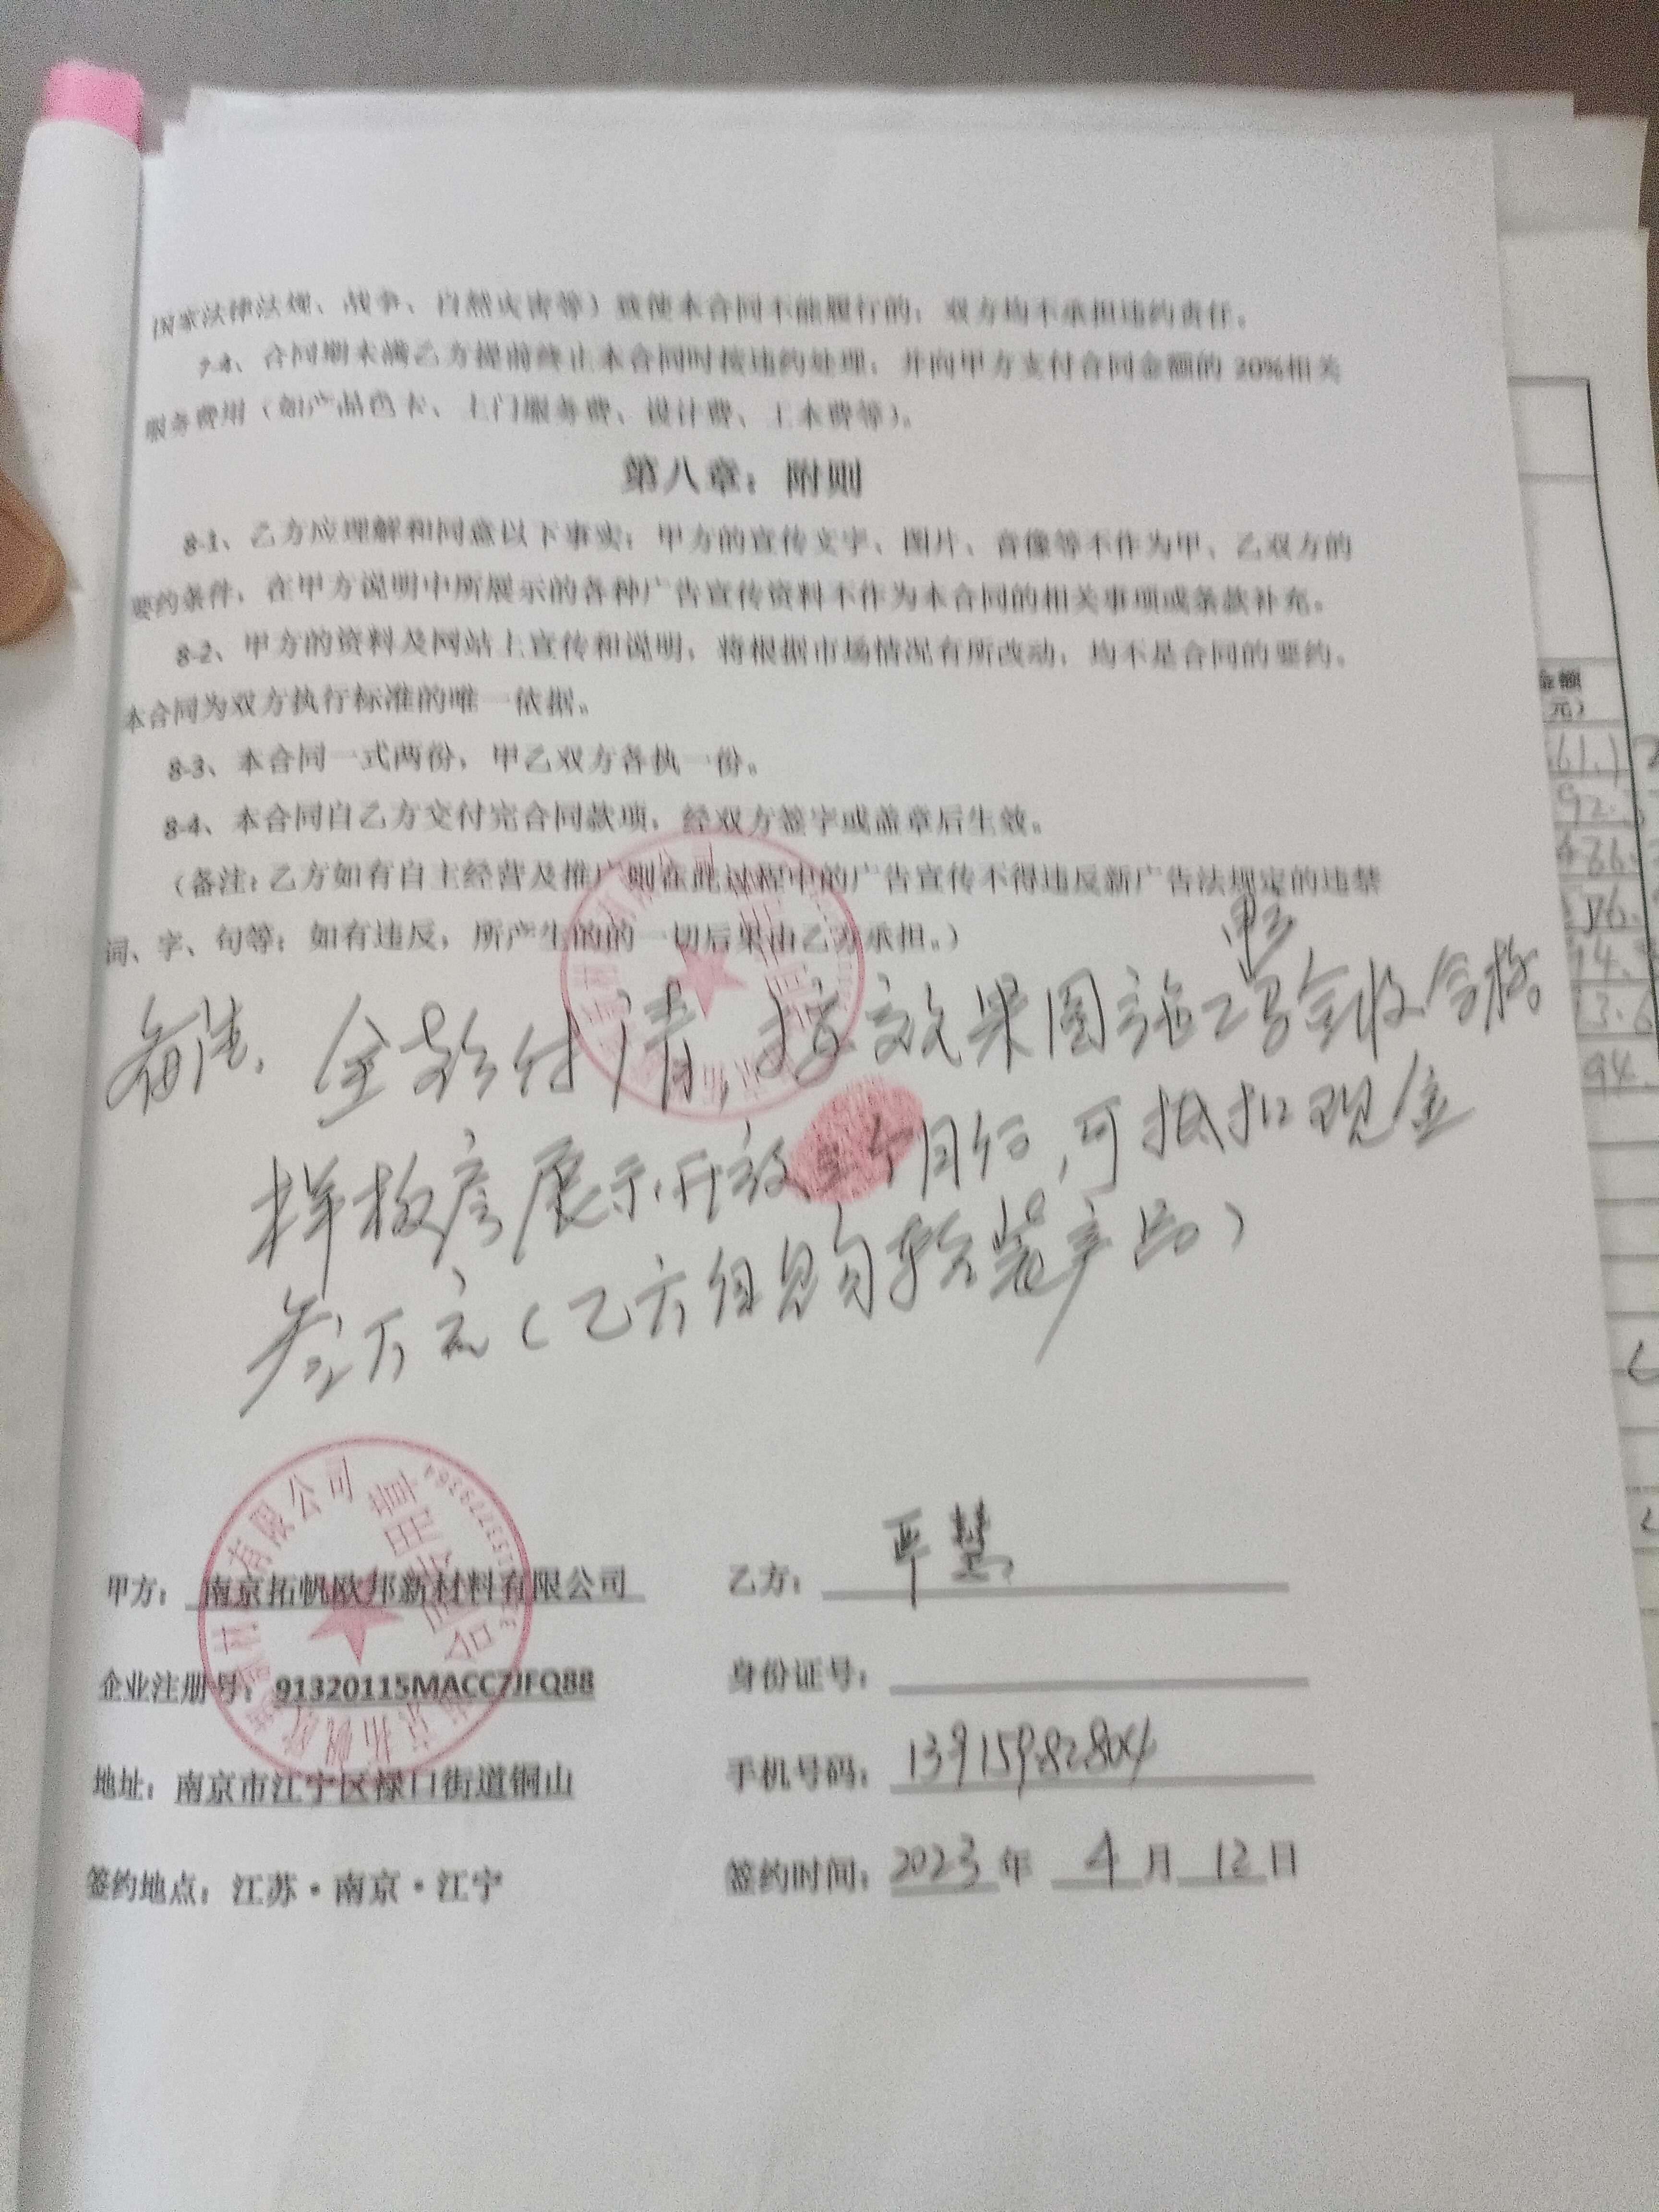 国家法律法规、战争、自然灾害等）致使本合同不能履行的，双方均不承担违约责任。
7-4、合同期未满乙方提前终止本合同时按违约处理，并向甲方支付合同金额的 20%相关
服务费用（如产品色卡、上门服务费、设计费、工本费等）。
第八章：附则
8-1、乙方应理解和同意以下事实：甲方的宣传文字、图片、音像等不作为甲、乙双方的
要约条件，在甲方说明中所展示的各种广告宣传资料不作为本合同的相关事项或条款补充。
8-2、甲方的资料及网站上宣传和说明，将根据市场情况有所改动，均不是合同的要约。
本合同为双方执行标准的唯一依据。
8-3、本合同一式两份，甲乙双方各执一份。
8-4、本合同自乙方交付完合同款项，经双方签字或盖章后生效。
（备注：乙方如有自主经营及推广则在此过程中的广告宣传不得违反新广告法规定的违禁
词、字、句等；如有违反，所产生的的一切后果由乙方承担。）
备注、全款付清，按效果图施工
样板房展示开放 个月后，可抵扣现金
叁万元（乙方自购软装产品）
甲方：南京拓帆欧邦新材料有限公司
企业注册号：91320115MACC7JFQ88
地址：南京市江宁区禄口街道铜山
签约地点：江苏·南京·江宁
乙方：严慧
身份证号：
手机号码：13915982804
签约时间：2023年 4月 12日
金额
元）